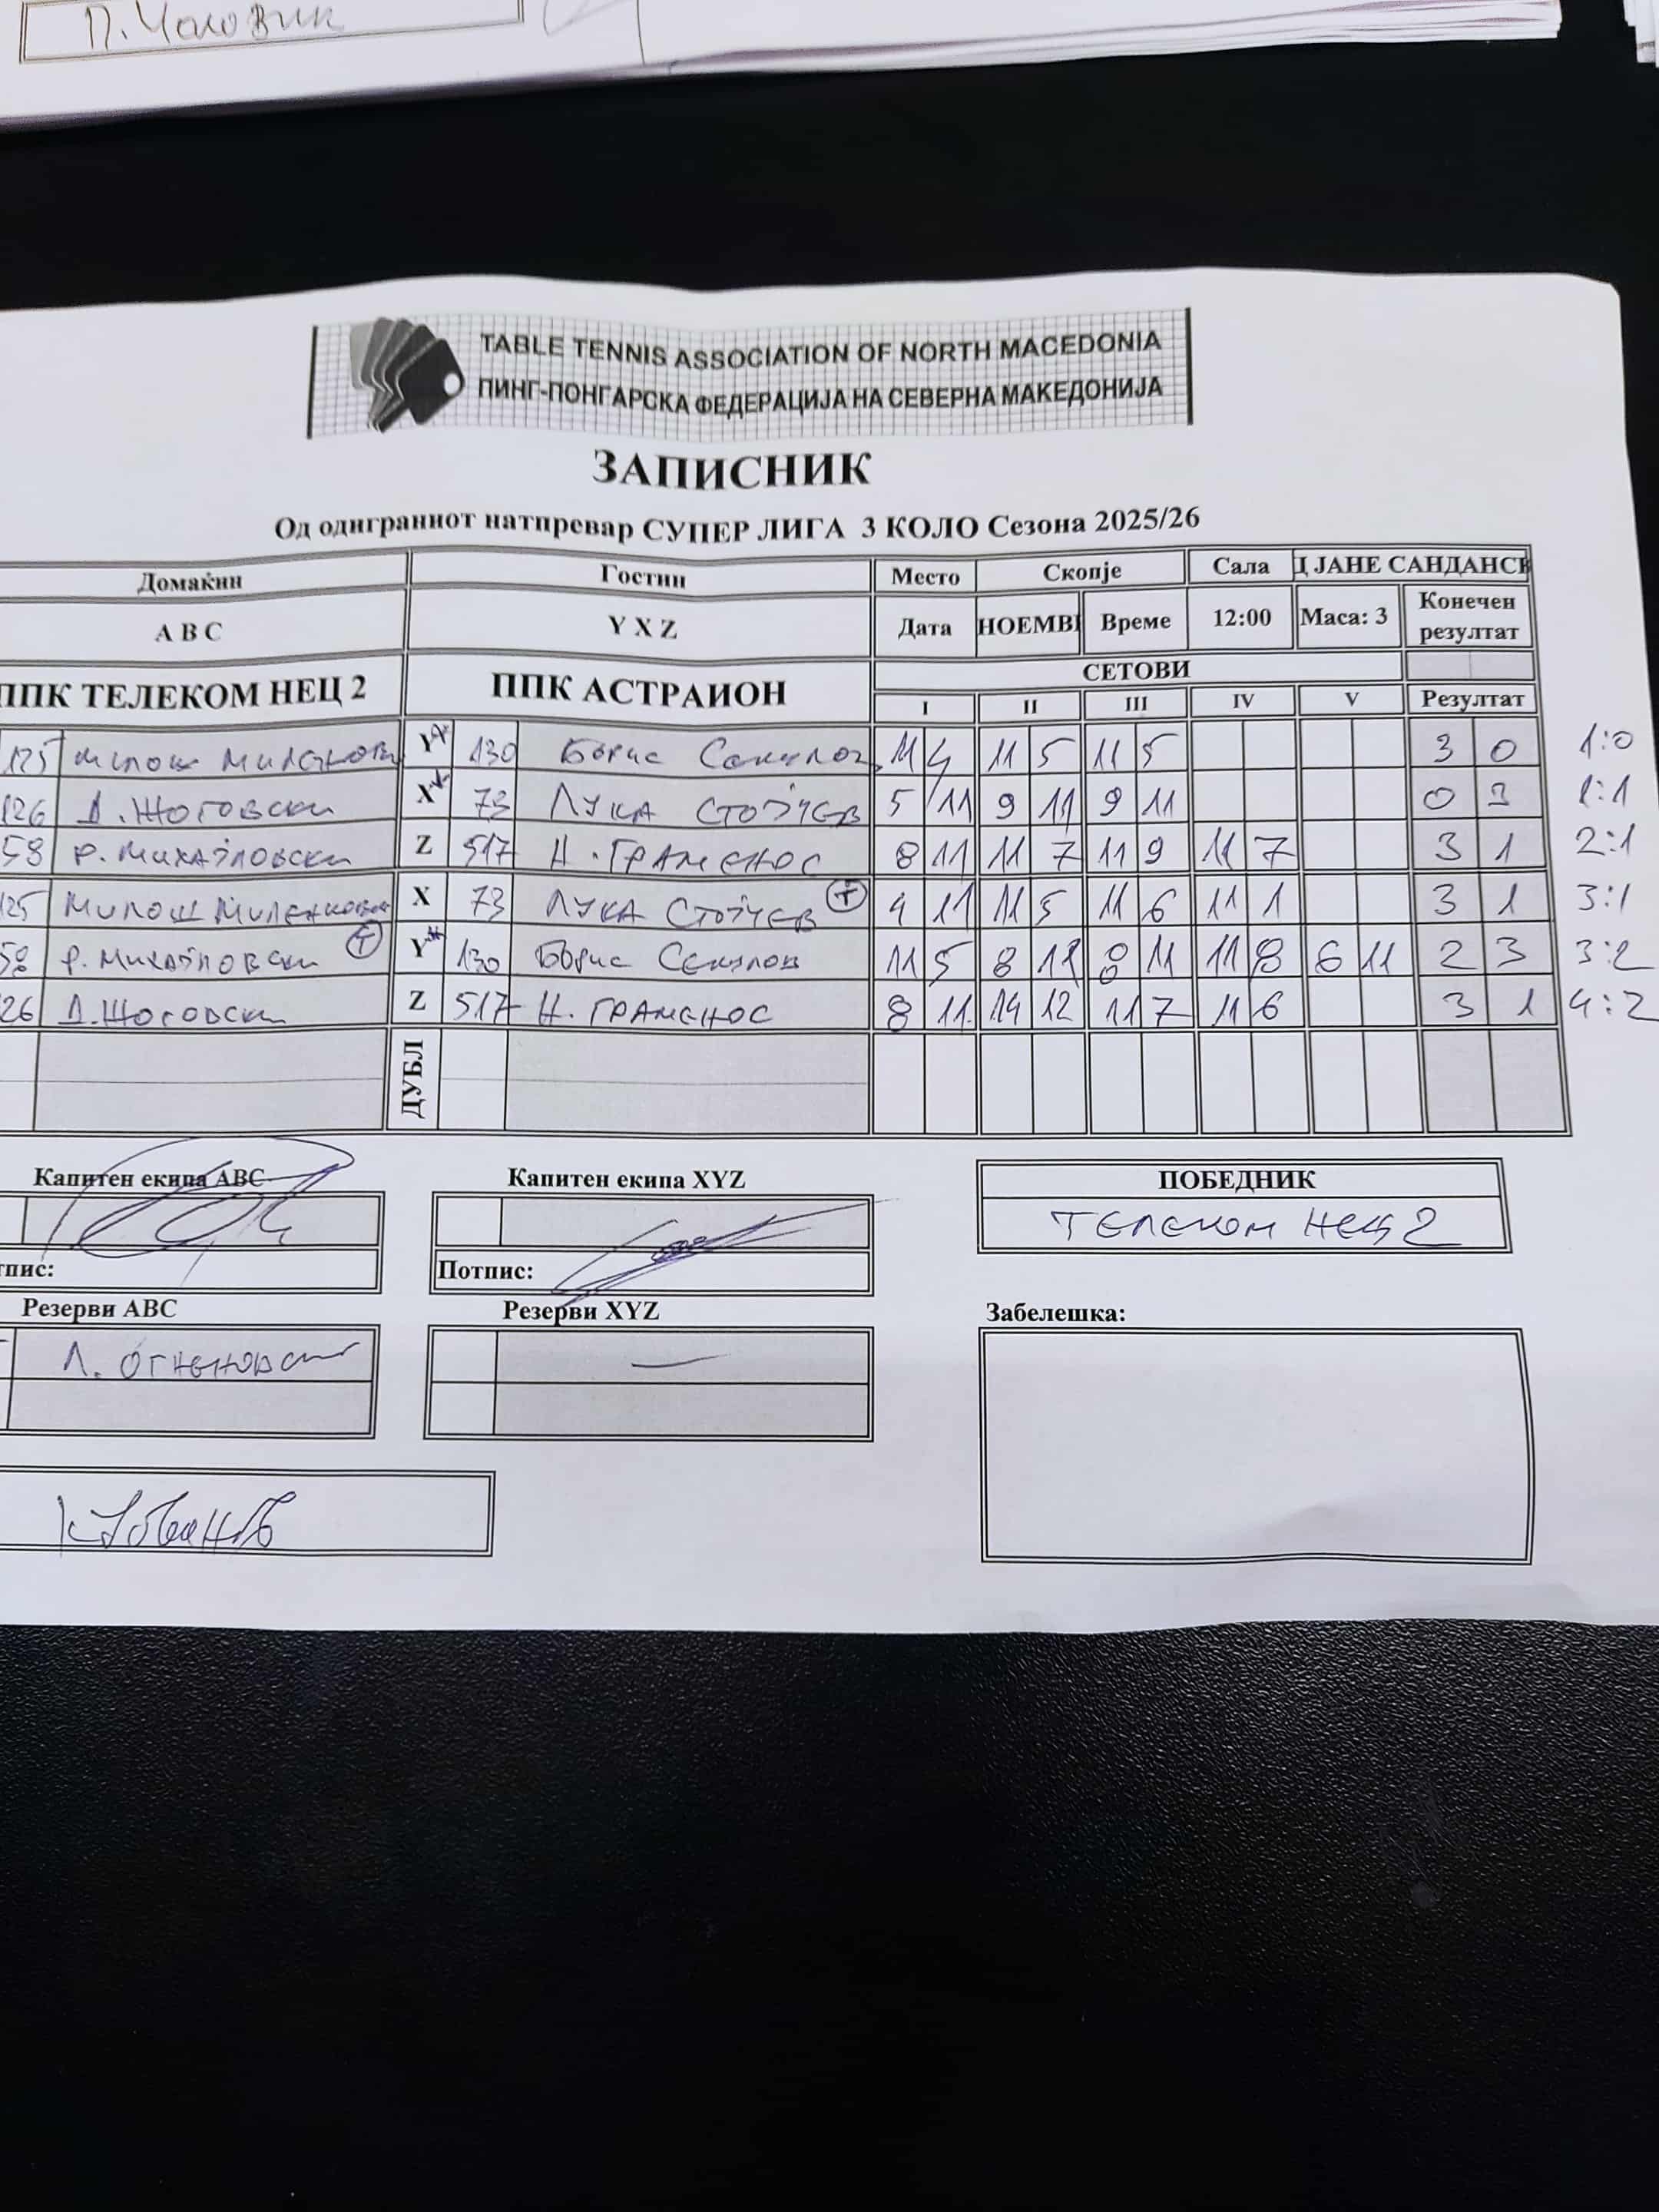 П. Чоловик
TABLE TENNIS ASSOCIATION OF NORTH MACEDONIA
ПИНГ-ПОНГАРСКА ФЕДЕРАЦИЈА НА СЕВЕРНА МАКЕДОНИЈА
ЗАПИСНИК
Од одиграниот натпревар СУПЕР ЛИГА 3 КОЛО Сезона 2025/26
Домаќин Гостин Место Скопје Сала Ц ЈАНЕ САНДАНСК
A B C Y X Z Дата НОЕМВР Време 12:00 Маса: 3 Конечен резултат
ППК ТЕЛЕКОМ НЕЦ 2 ППК АСТРАИОН СЕТОВИ
I II III IV V Резултат
125 Милош Миленкови Y 130 Борис Секулов 11 4 11 5 11 5 3 0 1:0
126 Д. Жоговски X 73 Лука Стојчев 5 11 9 11 9 11 0 3 1:1
58 Ф. Михајловски Z 517 Н. Граменос 8 11 11 7 11 9 11 7 3 1 2:1
125 Милош Миленкови X 73 Лука Стојчев T 4 11 11 5 11 6 11 1 3 1 3:1
58 Ф. Михајловски T Y 130 Борис Секулов 11 5 8 11 8 11 11 8 6 11 2 3 3:2
26 Д. Жоговски Z 517 Н. Граменос 8 11 14 12 11 7 11 6 3 1 4:2
ДУБЛ
Капитен екипа ABC Капитен екипа XYZ ПОБЕДНИК
Телеком Нец 2
тпис: Потпис:
Резерви ABC Резерви XYZ Забелешка:
Л. Огненовски —